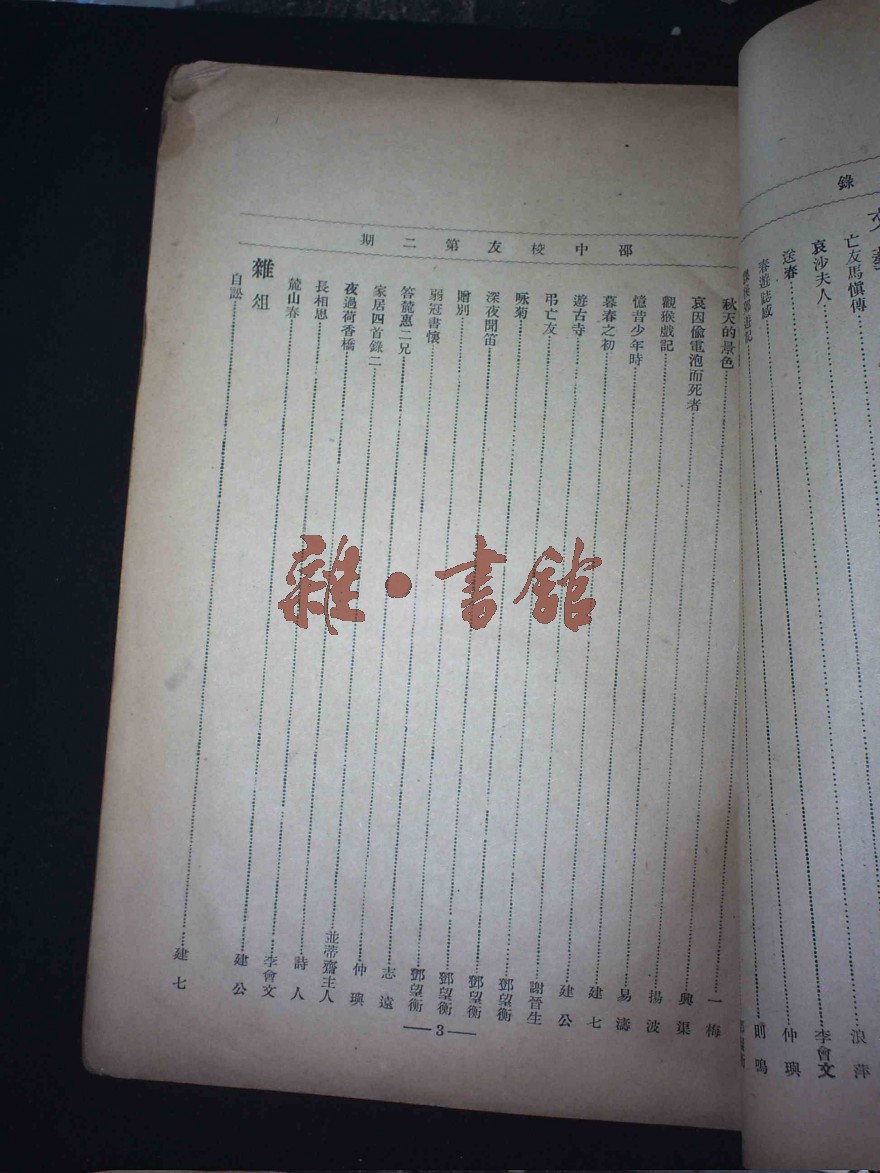 錄
亡友馬愼傳 浪萍
哀沙夫人 李會文
送春 仲璵
春遊誌感 則鳴
邵中校友第二期
一梅
秋天的景色 興渠
哀因偷電泡而死者 揚波
觀猴戲記 易濤
憶昔少年時 建七
暮春之初 建公
遊古寺 謝晉生
弔亡友 鄧望衡
咏菊 鄧望衡
深夜聞笛 鄧望衡
贈別 鄧望衡
弱冠書懷 志遠
答蘢惠二兄 仲璵
家居四首錄二 並蒂齋主人
夜過荷香橋 詩人
長相思 李會文
蘢山春 建公
雜俎
自訟 建七
3
雜·書館